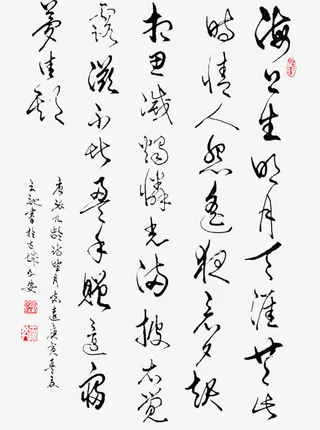 海上生明月天涯共此
時情人怨遥夜竟夕起
相思滅燭憐光滿披衣覺
露滋不堪盈手贈還寢
夢佳期
唐張九齡詩望月懷遠庚寅
書於古城西安